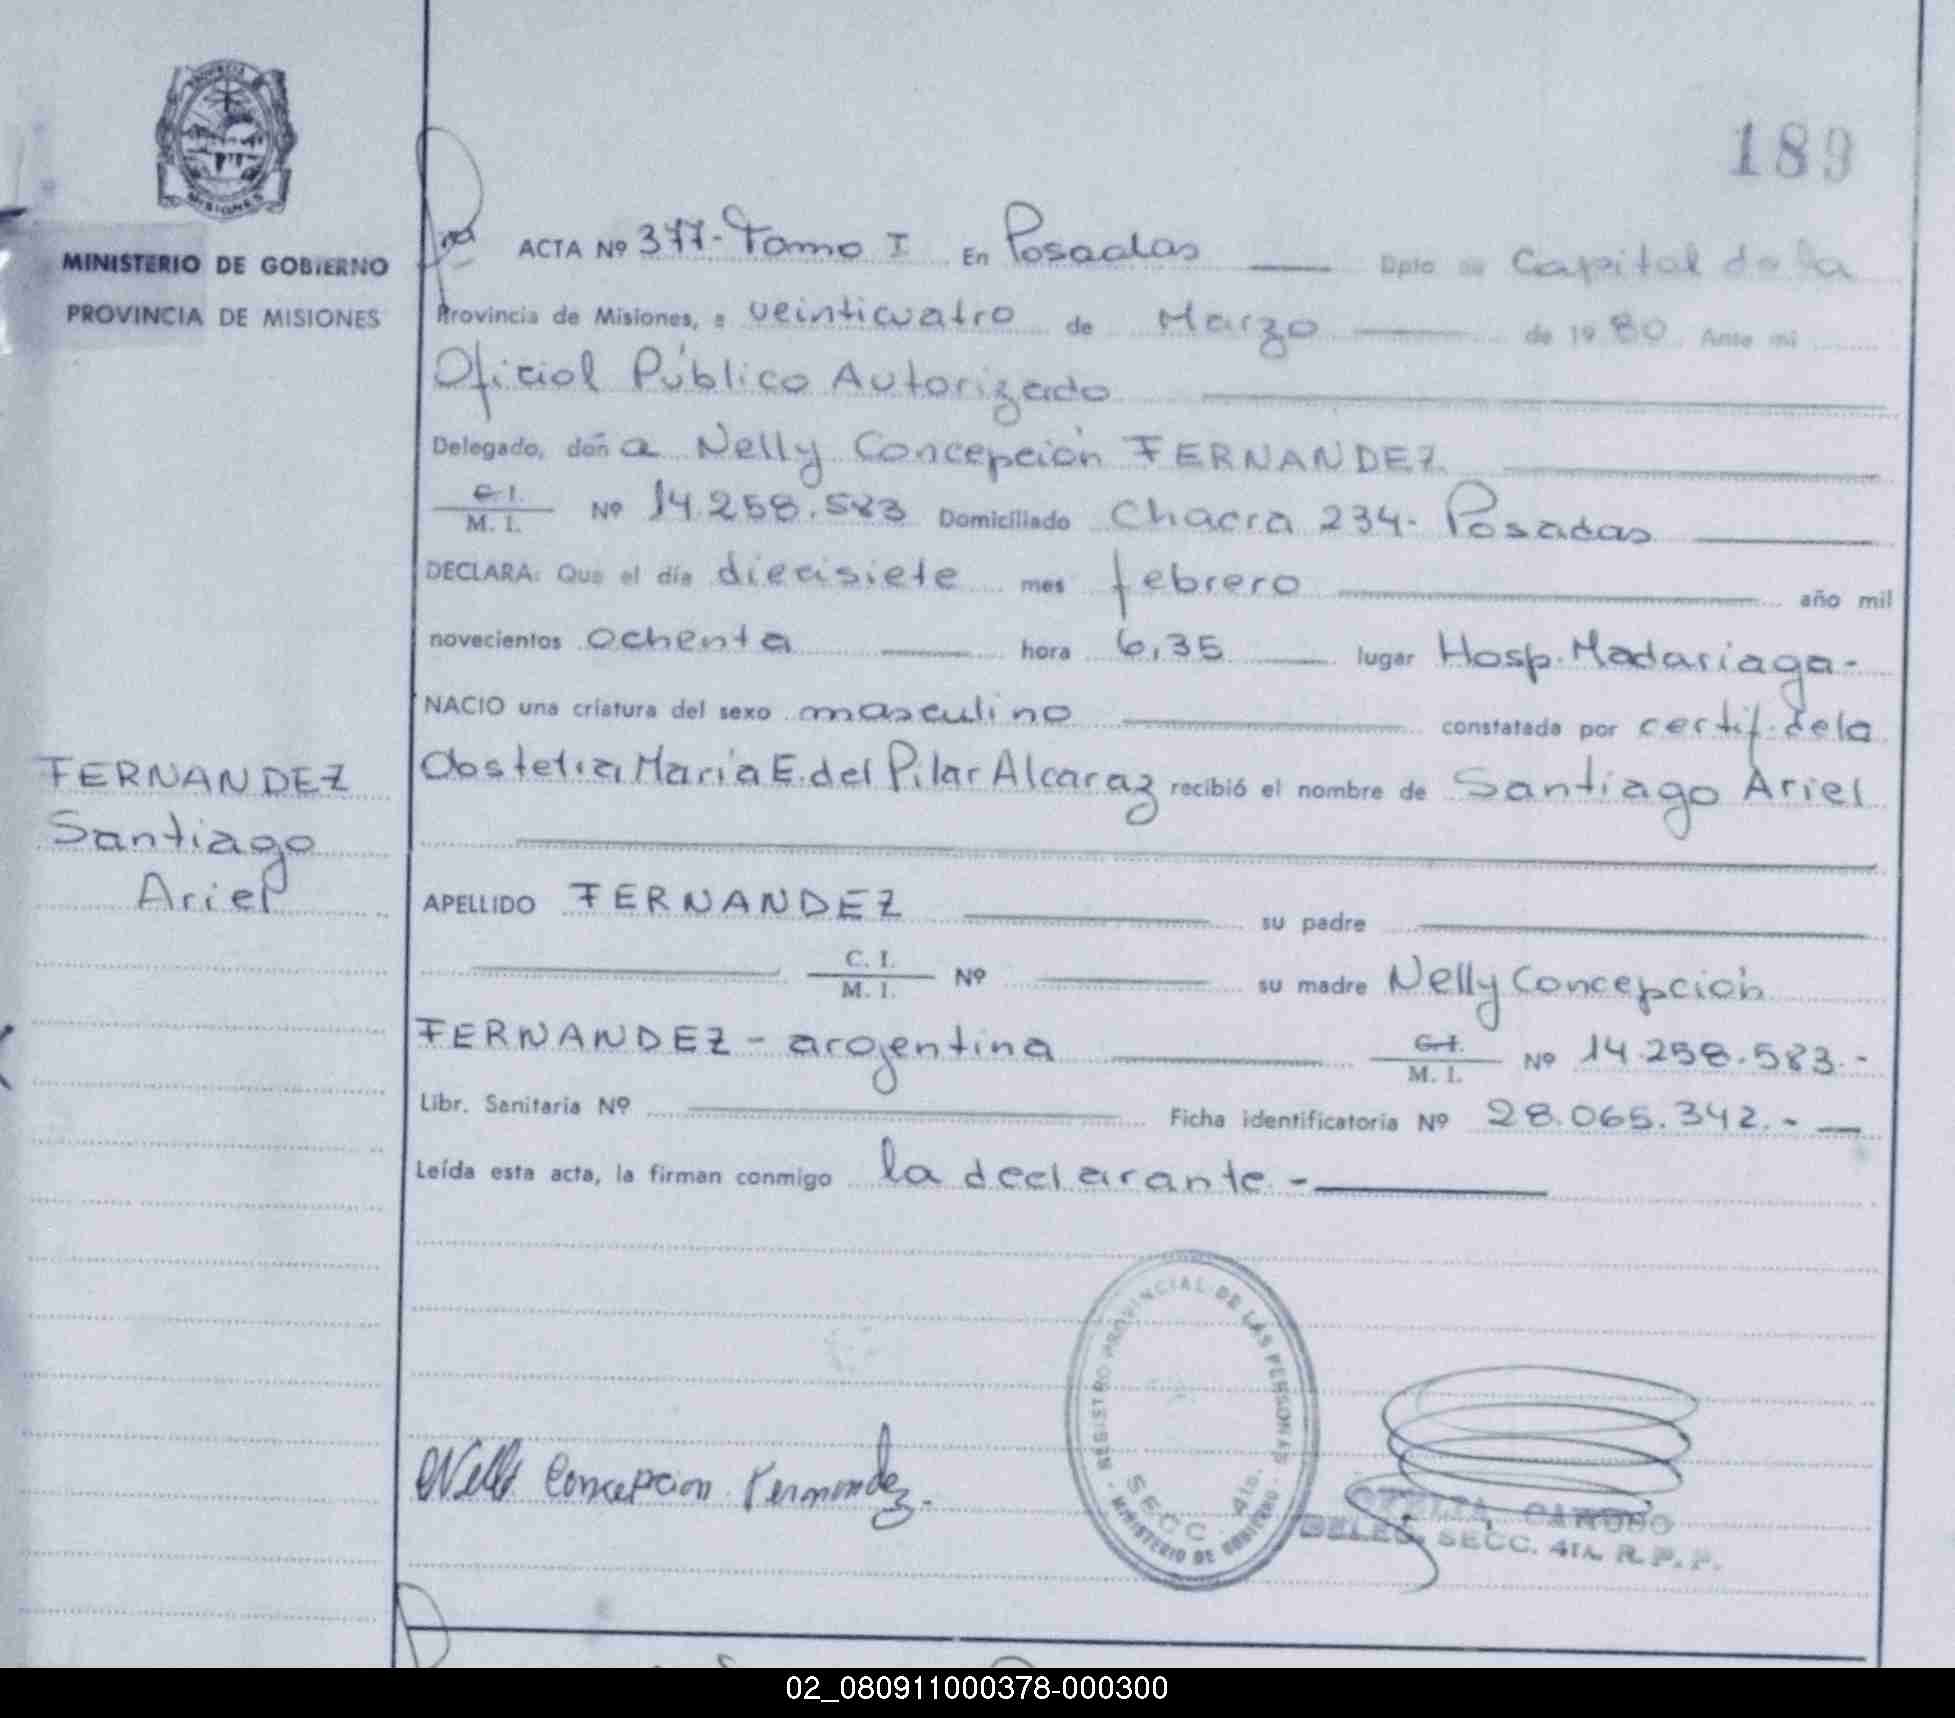 PROVINCIA
MISIONES
MINISTERIO DE GOBIERNO
PROVINCIA DE MISIONES
FERNANDEZ
Santiago
Ariel
189
ACTA Nº 377- Tomo I En Posadas Dpto de Capital de la
Provincia de Misiones, a veinticuatro de Marzo de 1980 Ante mi
Oficial Público Autorizado
Delegado, doña Nelly Concepción FERNANDEZ
C.I. / M.I. Nº 14.258.583 Domiciliado Chacra 234- Posadas
DECLARA: Que el día diecisiete mes febrero año mil
novecientos ochenta hora 6,35 lugar Hosp. Madariaga-
NACIO una criatura del sexo masculino constatada por certif. de la
Obstetra Maria E. del Pilar Alcaraz recibió el nombre de Santiago Ariel
APELLIDO FERNANDEZ su padre
C. I. / M. I. Nº su madre Nelly Concepción
FERNANDEZ - argentina C.I. / M. I. Nº 14.258.583.-
Libr. Sanitaria Nº Ficha identificatoria Nº 28.065.342.-
Leída esta acta, la firman conmigo la declarante -
Nelly Concepcion Fernandez.
REGISTRO PROVINCIAL DE LAS PERSONAS
SECC. 4ta.
MINISTERIO DE GOBIERNO
DELEG. SECC. 4TA. R. P. P.
02_080911000378-000300